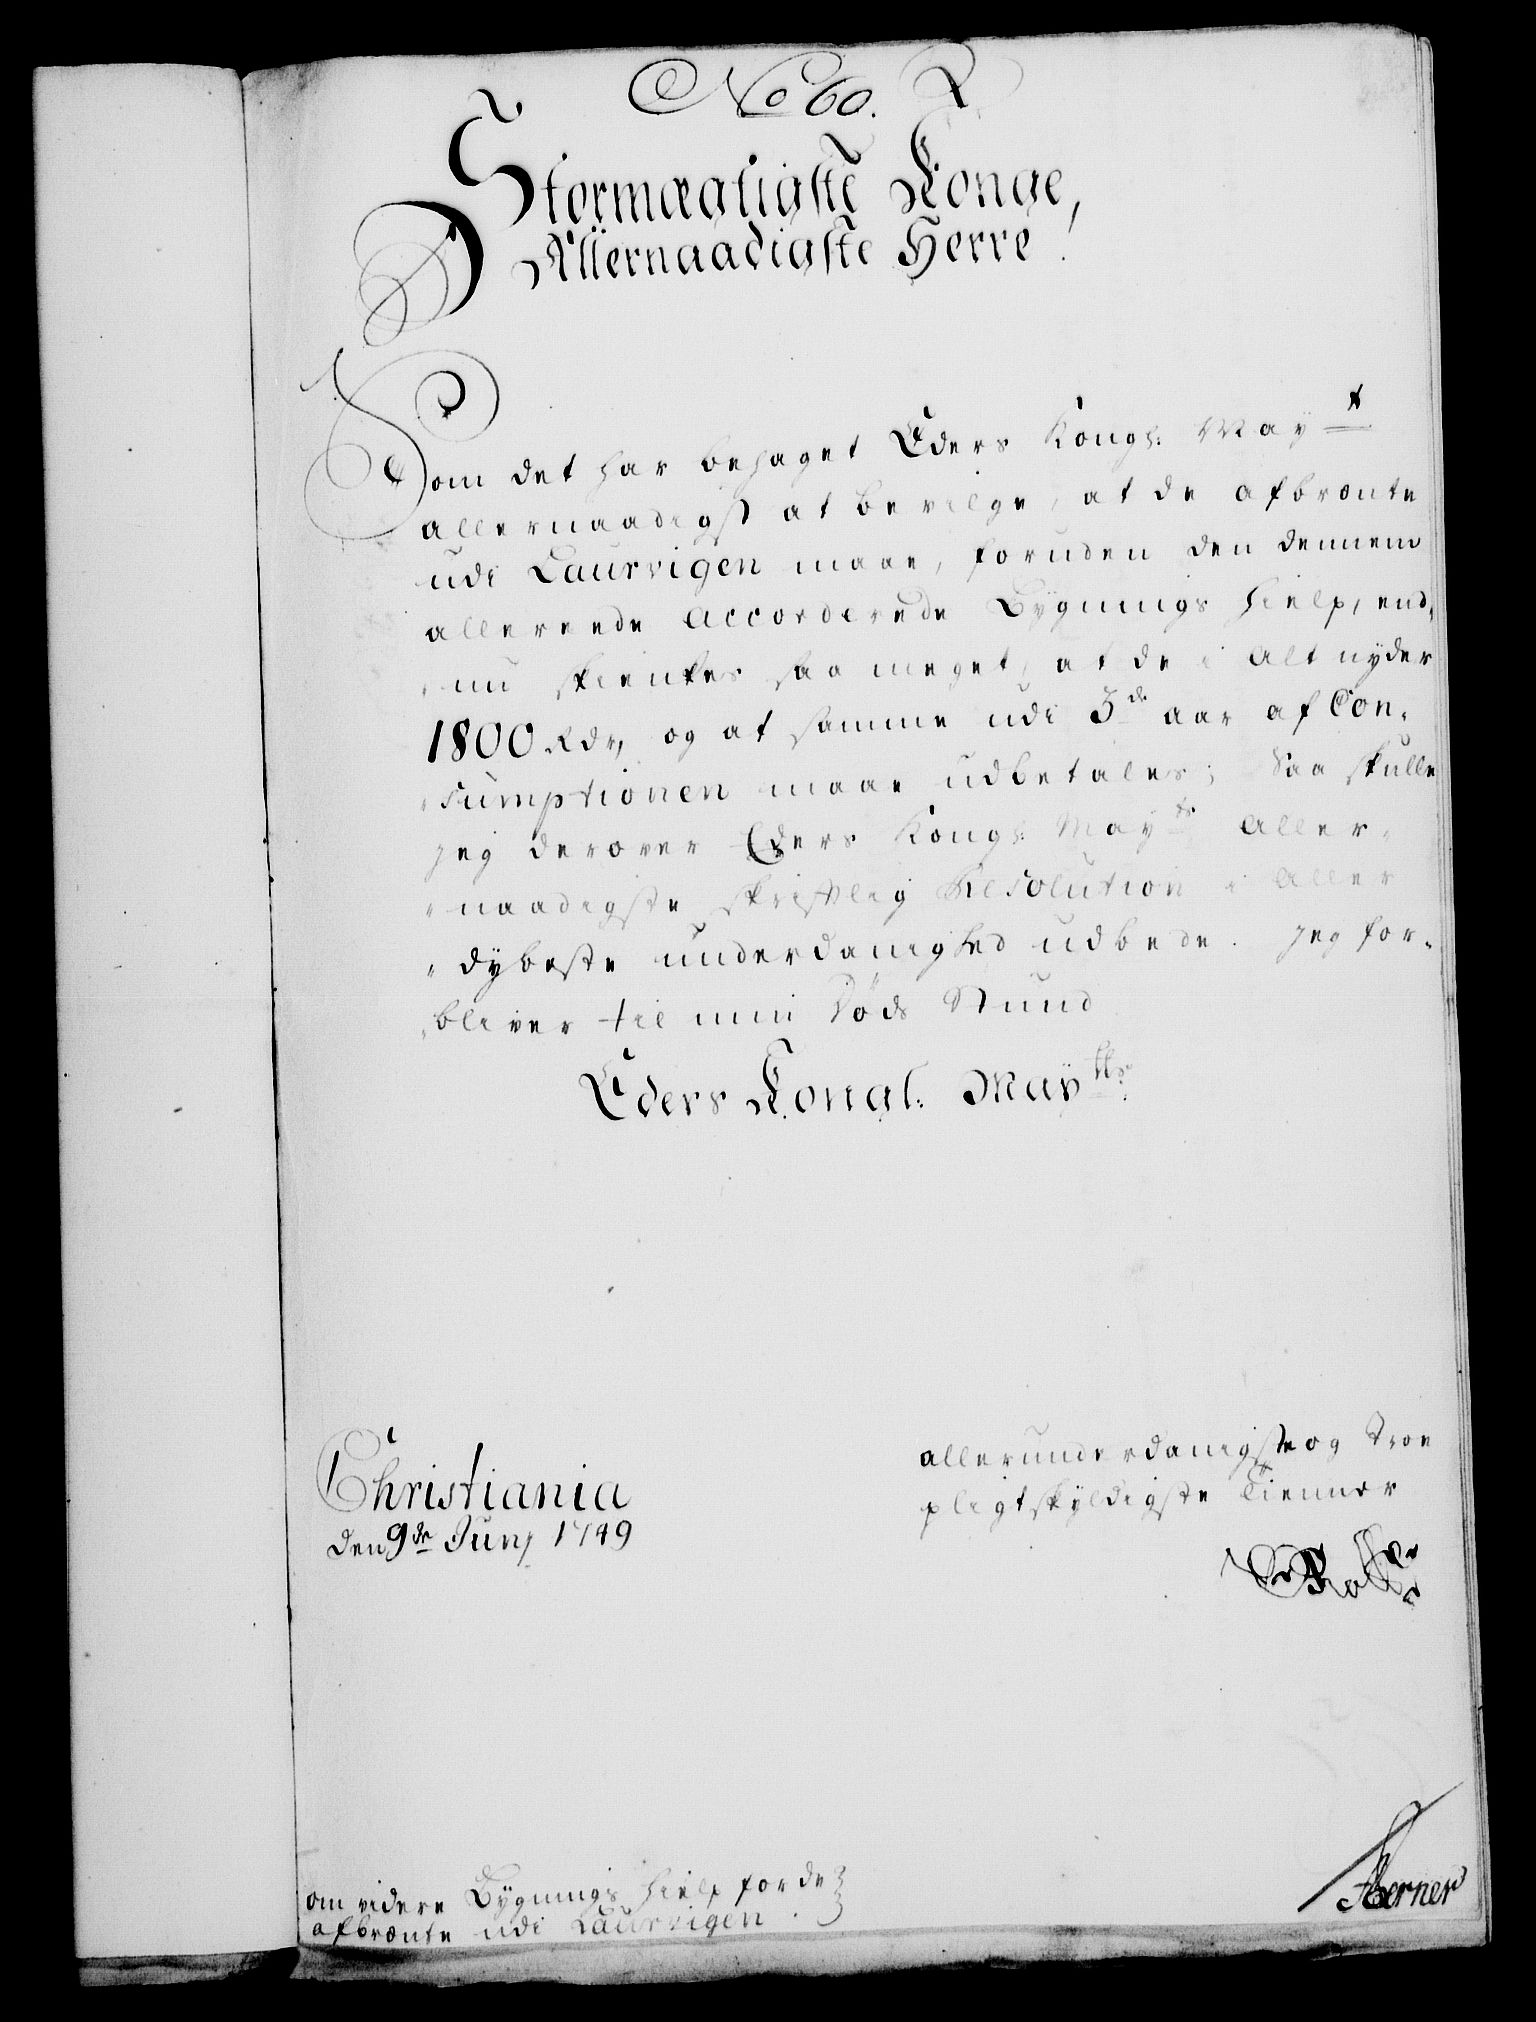 No 60.
Stormægtigste Konge,
Allernaadigste Herre!
Som det har behaget Eders Kongl: May t
allernaadigst at bevilge, at de afbrænte
udi Laurvigen maae, foruden den dennem
allereede accorderede Bygnings Hielp, end,
nu skienkes saa meget, at de i alt nyder
1800 Rdr, og at samme udi 3de aar af Con,
sumptionen maae udbetales; Saa skulle
jeg derover Eders Kongl: Mayts Aller,
naadigste skriftlig Resolution i aller
dybeste underdanighed udbede. Jeg for,
bliver til min Døds Stund
Eders Kongl: Maytts
Christiania
den 9de Junj 1749
allerunderdanigste og Troe
pligtskyldigste Tienner
om videre Bygnings Hielp for de
afbrænte udi Laurvigen.